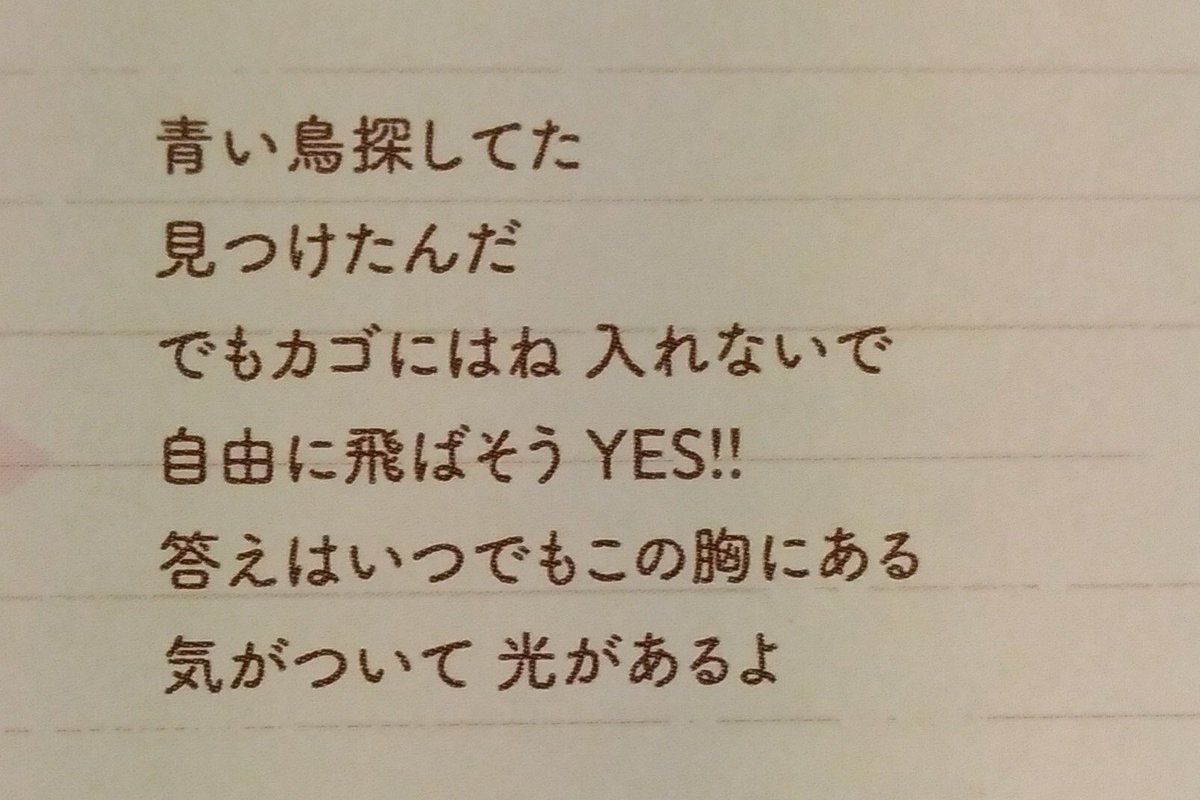 青い鳥探してた
見つけたんだ
でもカゴにはね 入れないで
自由に飛ばそう YES!!
答えはいつでもこの胸にある
気がついて 光があるよ